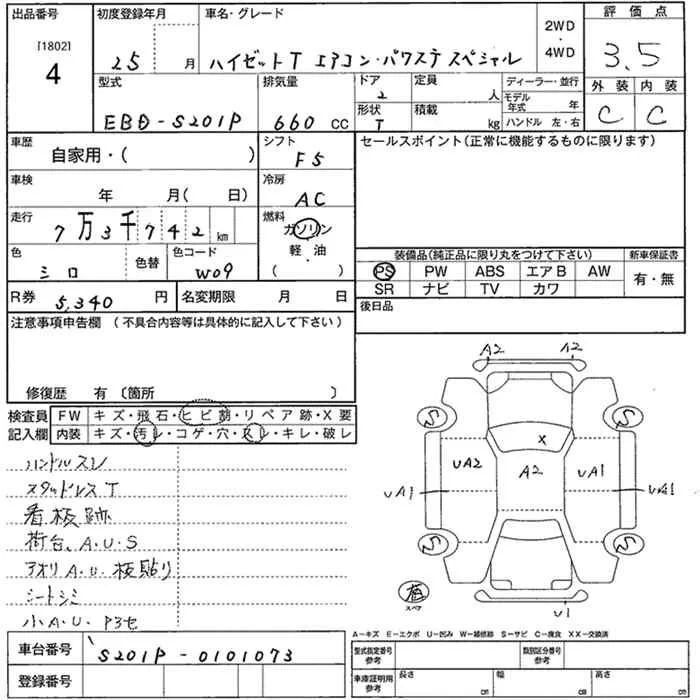 出品番号
[1802]
4
初度登録年月
25 月
車名・グレード
ハイゼットT エアコン・パワステ スペシャル
2WD
・
4WD
評価点
3.5
型式
EBD-S201P
排気量
660 cc
ドア
2
定員
人
形状
T
積載
kg
ディーラー・並行
モデル年式 年
ハンドル 左・右
外装 内装
C C
車歴
自家用・( )
シフト
F5
セールスポイント(正常に機能するものに限ります)
車検
年 月( 日)
冷房
AC
走行
7万3千742km
燃料
ガソリン
・
軽・油
( )
色
シロ
色替
色コード
W09
装備品(純正品に限り丸をつけて下さい)
新車保証書
PS PW ABS エアB AW
SR ナビ TV カワ
有・無
R券 5,340 円
名変期限 月 日
後日品
注意事項申告欄 (不具合内容等は具体的に記入して下さい)
修復歴 有 〔箇所 〕
検査員記入欄
FW キズ・飛石・ヒビ割・リペア跡・X要
内装 キズ・汚レ・コゲ・穴・スレ・キレ・破レ
ハンドルスレ
スタッドレスT
看板跡
荷台、A.U.S
アオリA.U.板貼り
シートシミ
小A.U.
A2 A2
S S
X
UA2 A2 UA1
UA1 UA1
S S
スペア
U1
A-キズ E-エクボ U-凹み W-補修跡 S-サビ C-腐食 XX-交換済
車台番号
S201P-0101073
登録番号
型式指定番号
参考
類別区分番号
参考
車庫証明用
参考
長さ cm
幅 cm
高さ cm